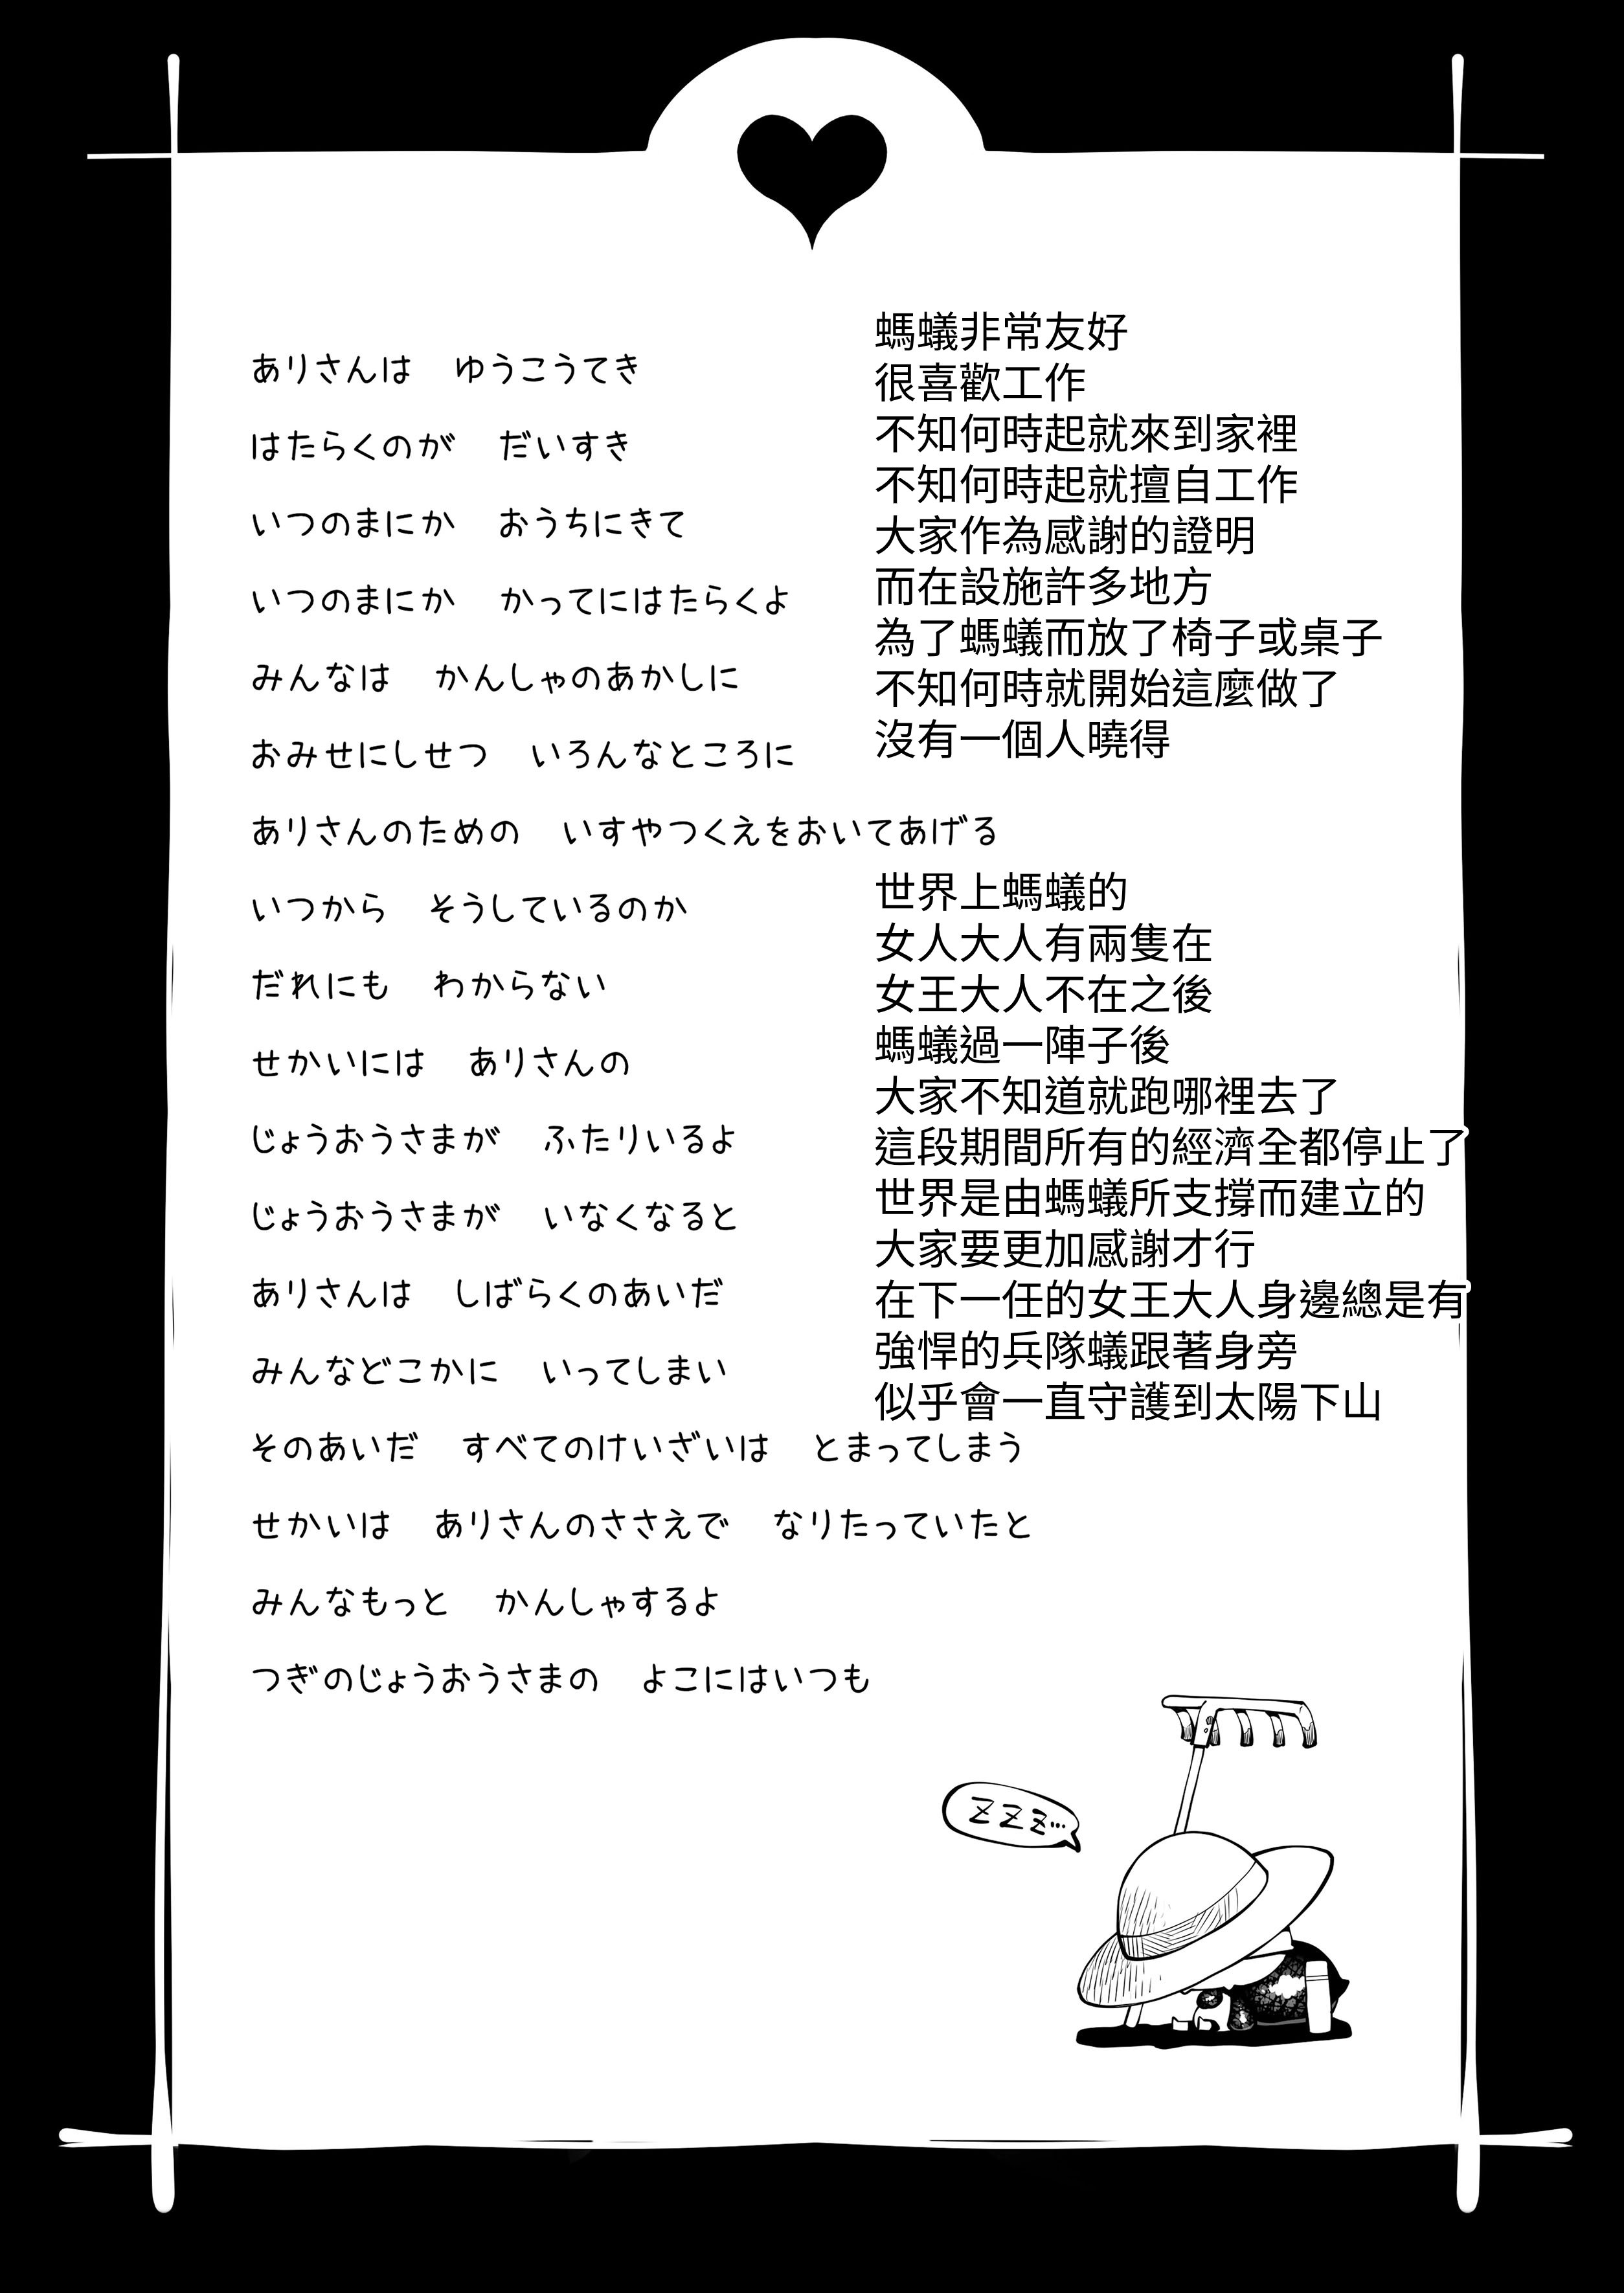 ありさんは　ゆうこうてき
はたらくのが　だいすき
いつのまにか　おうちにきて
いつのまにか　かってにはたらくよ
みんなは　かんしゃのあかしに
おみせにしせつ　いろんなところに
ありさんのための　いすやつくえをおいてあげる
いつから　そうしているのか
だれにも　わからない
せかいには　ありさんの
じょうおうさまが　ふたりいるよ
じょうおうさまが　いなくなると
ありさんは　しばらくのあいだ
みんなどこかに　いってしまい
そのあいだ　すべてのけいざいは　とまってしまう
せかいは　ありさんのささえで　なりたっていたと
みんなもっと　かんしゃするよ
つぎのじょうおうさまの　よこにはいつも
螞蟻非常友好
很喜歡工作
不知何時起就來到家裡
不知何時起就擅自工作
大家作為感謝的證明
而在設施許多地方
為了螞蟻而放了椅子或桌子
不知何時就開始這麼做了
沒有一個人曉得
世界上螞蟻的
女人大人有兩隻在
女王大人不在之後
螞蟻過一陣子後
大家不知道就跑哪裡去了
這段期間所有的經濟全都停止了
世界是由螞蟻所支撐而建立的
大家要更加感謝才行
在下一任的女王大人身邊總是有
強悍的兵隊蟻跟著身旁
似乎會一直守護到太陽下山
ZZZ…